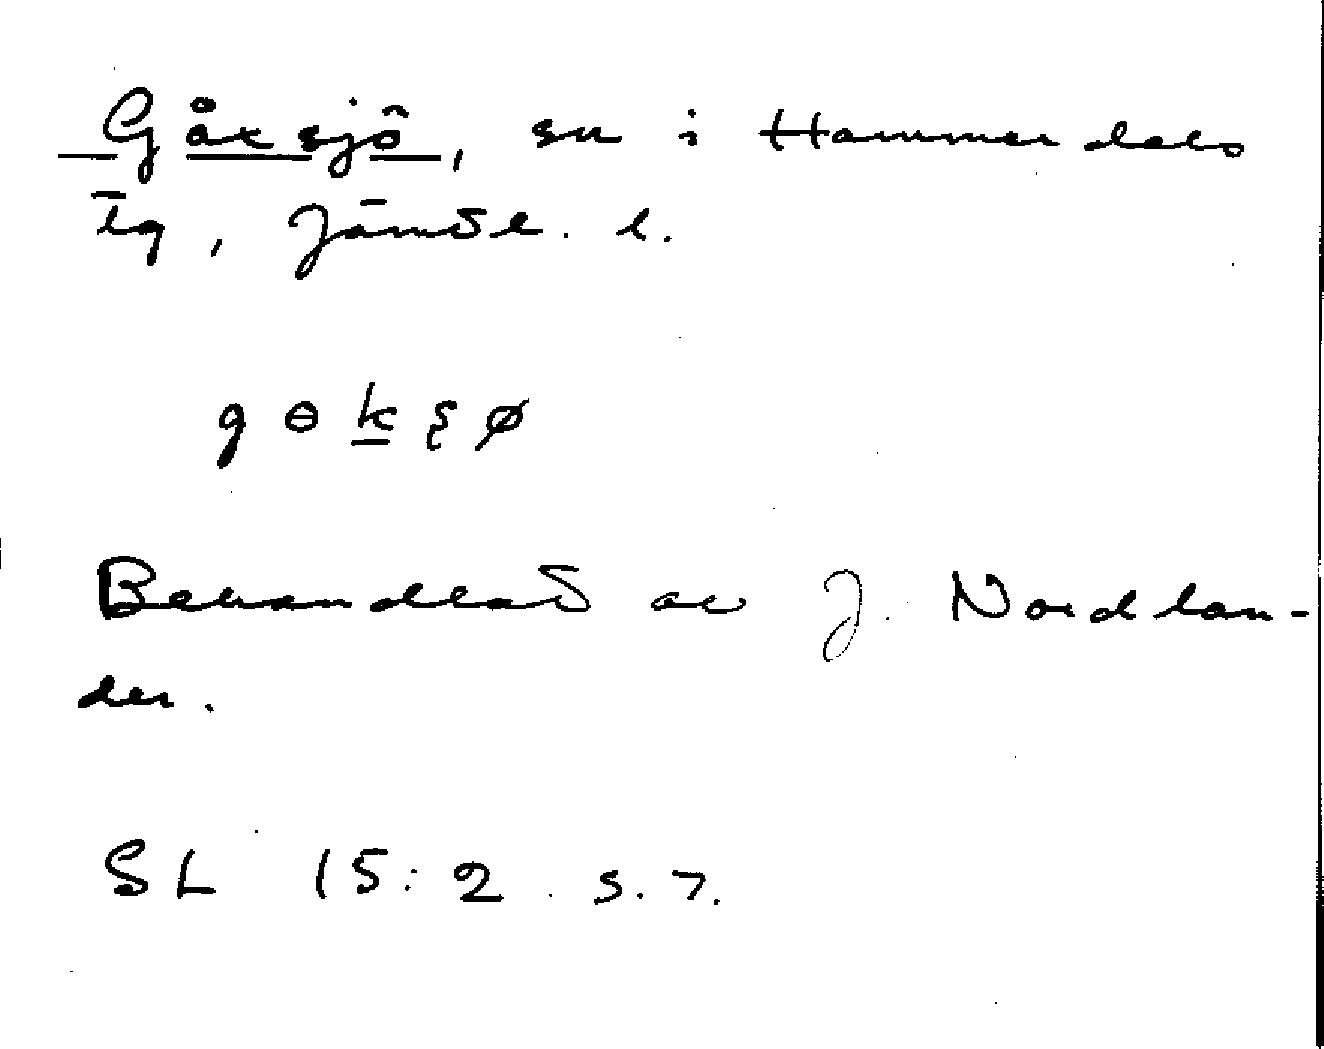 Gåxsjö, sn i Hammerdals
tg, Jämtl. l.
gɵkʂø
Behandlat av J. Nordlan-
der.
SL 15:2 s. 7.